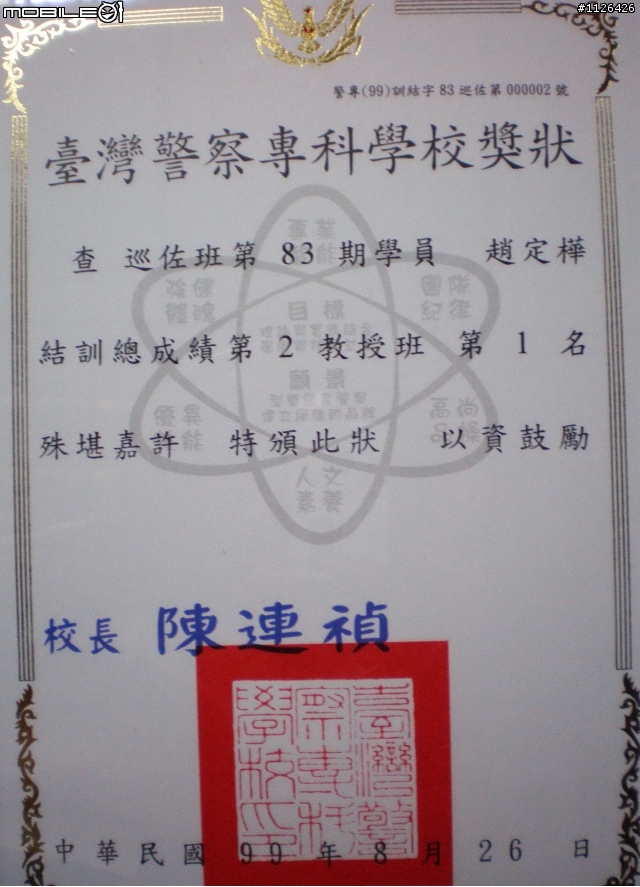 MOBILE01
#1126426
警專(99)訓結字83巡佐第000002號
臺灣警察專科學校獎狀
查 巡佐班第 83 期學員 趙定樺
結訓總成績第 2 教授班 第 1 名
殊堪嘉許 特頒此狀 以資鼓勵
專業
強健 團隊
體魄 紀律
目標
願景
優異 高尚
人文
素養
校長 陳連禎
臺灣警察專科學校印
中華民國 99 年 8 月 26 日